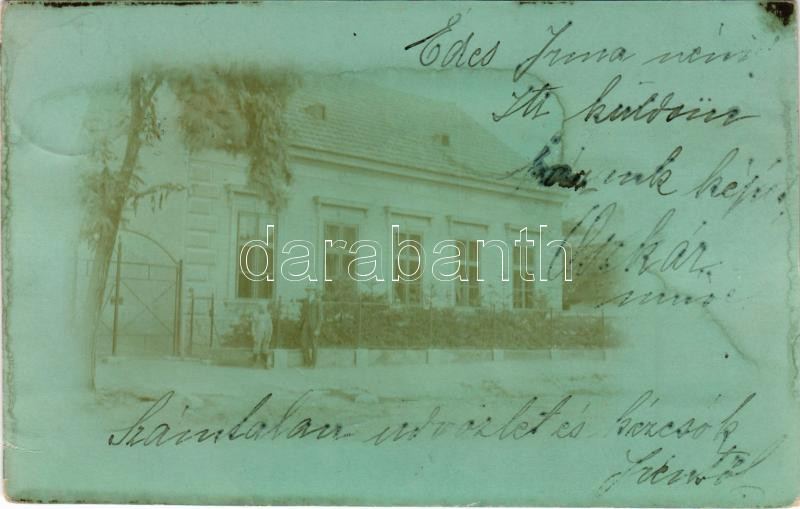 Édes Irma néni
Itt küldöm
házunk képét
Oszkár
darabanth
Számtalan üdvözlet és kézcsók